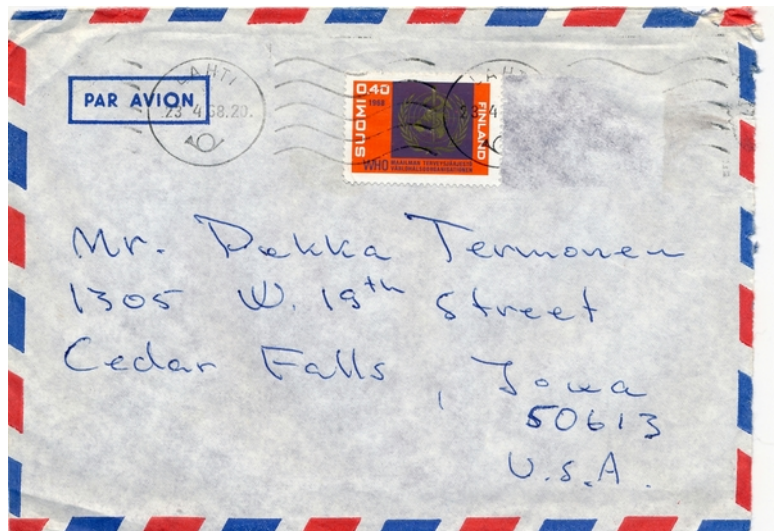 LAHTI
PAR AVION
23 4 68.20.
SUOMI 0,40
1968
FINLAND
WHO MAAILMAN TERVEYSJÄRJESTÖ
VÄRLDSHÄLSOORGANISATIONEN
LAHTI
23 4
Mr. Pekka Termonen
1305 W. 19th Street
Cedar Falls, Iowa
50613
U.S.A.